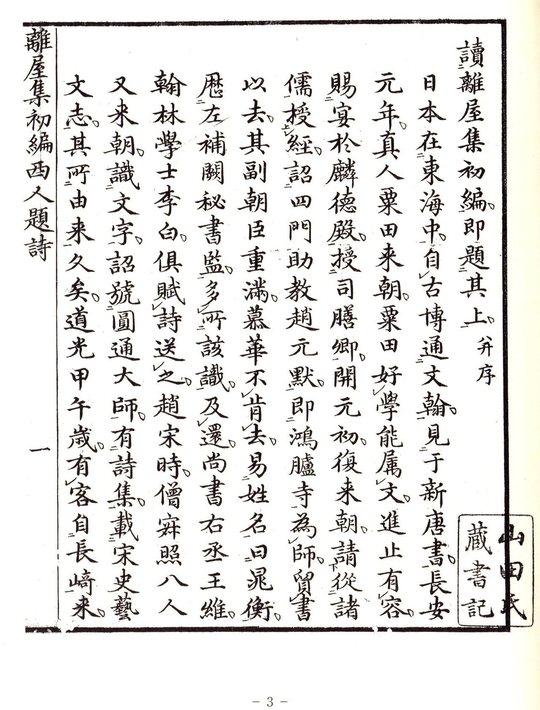 讀離屋集初編即題其上 并序
日本在東海中自古博通文翰見于新唐書長安
元年真人粟田来朝粟田好學能属文進止有容
賜宴於麟德殿授司膳卿開元初復来朝請從諸
儒授經詔四門助教趙元默即鴻臚寺為師貿書
以去其副朝臣重満慕華不肯去易姓名曰晁衡
歴左補闕秘書監多所該識及還尚書右丞王維
翰林學士李白俱賦詩送之趙宋時僧寂照八人
又来朝識文字詔號圓通大師有詩集載宋史藝
文志其所由来久矣道光甲午歳有客自長﨑来
離屋集初編西人題詩
一
山田氏
蔵書記
- 3 -